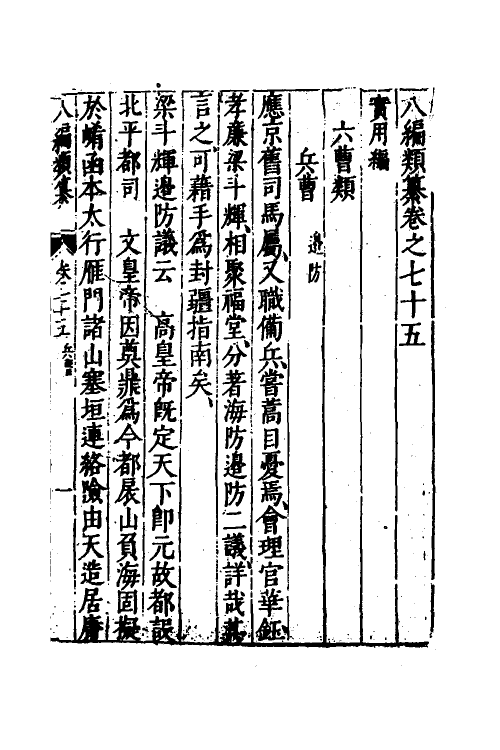 八編類纂卷之七十五
實用編
六曹類
兵曹 邊防
應京舊司馬屬又職備兵嘗蒿目憂焉會理官華鈺
孝廉梁斗輝相聚福堂分著海防邊防二議詳哉其
言之可藉手爲封疆指南矣
梁斗輝邊防議云 高皇帝旣定天下卽元故都設
北平都司 文皇帝因奠鼎爲今都扆山負海固擬
於崤函本太行雁門諸山塞垣連絡險由天造居庸
八編類纂 卷七十五 兵曹 一